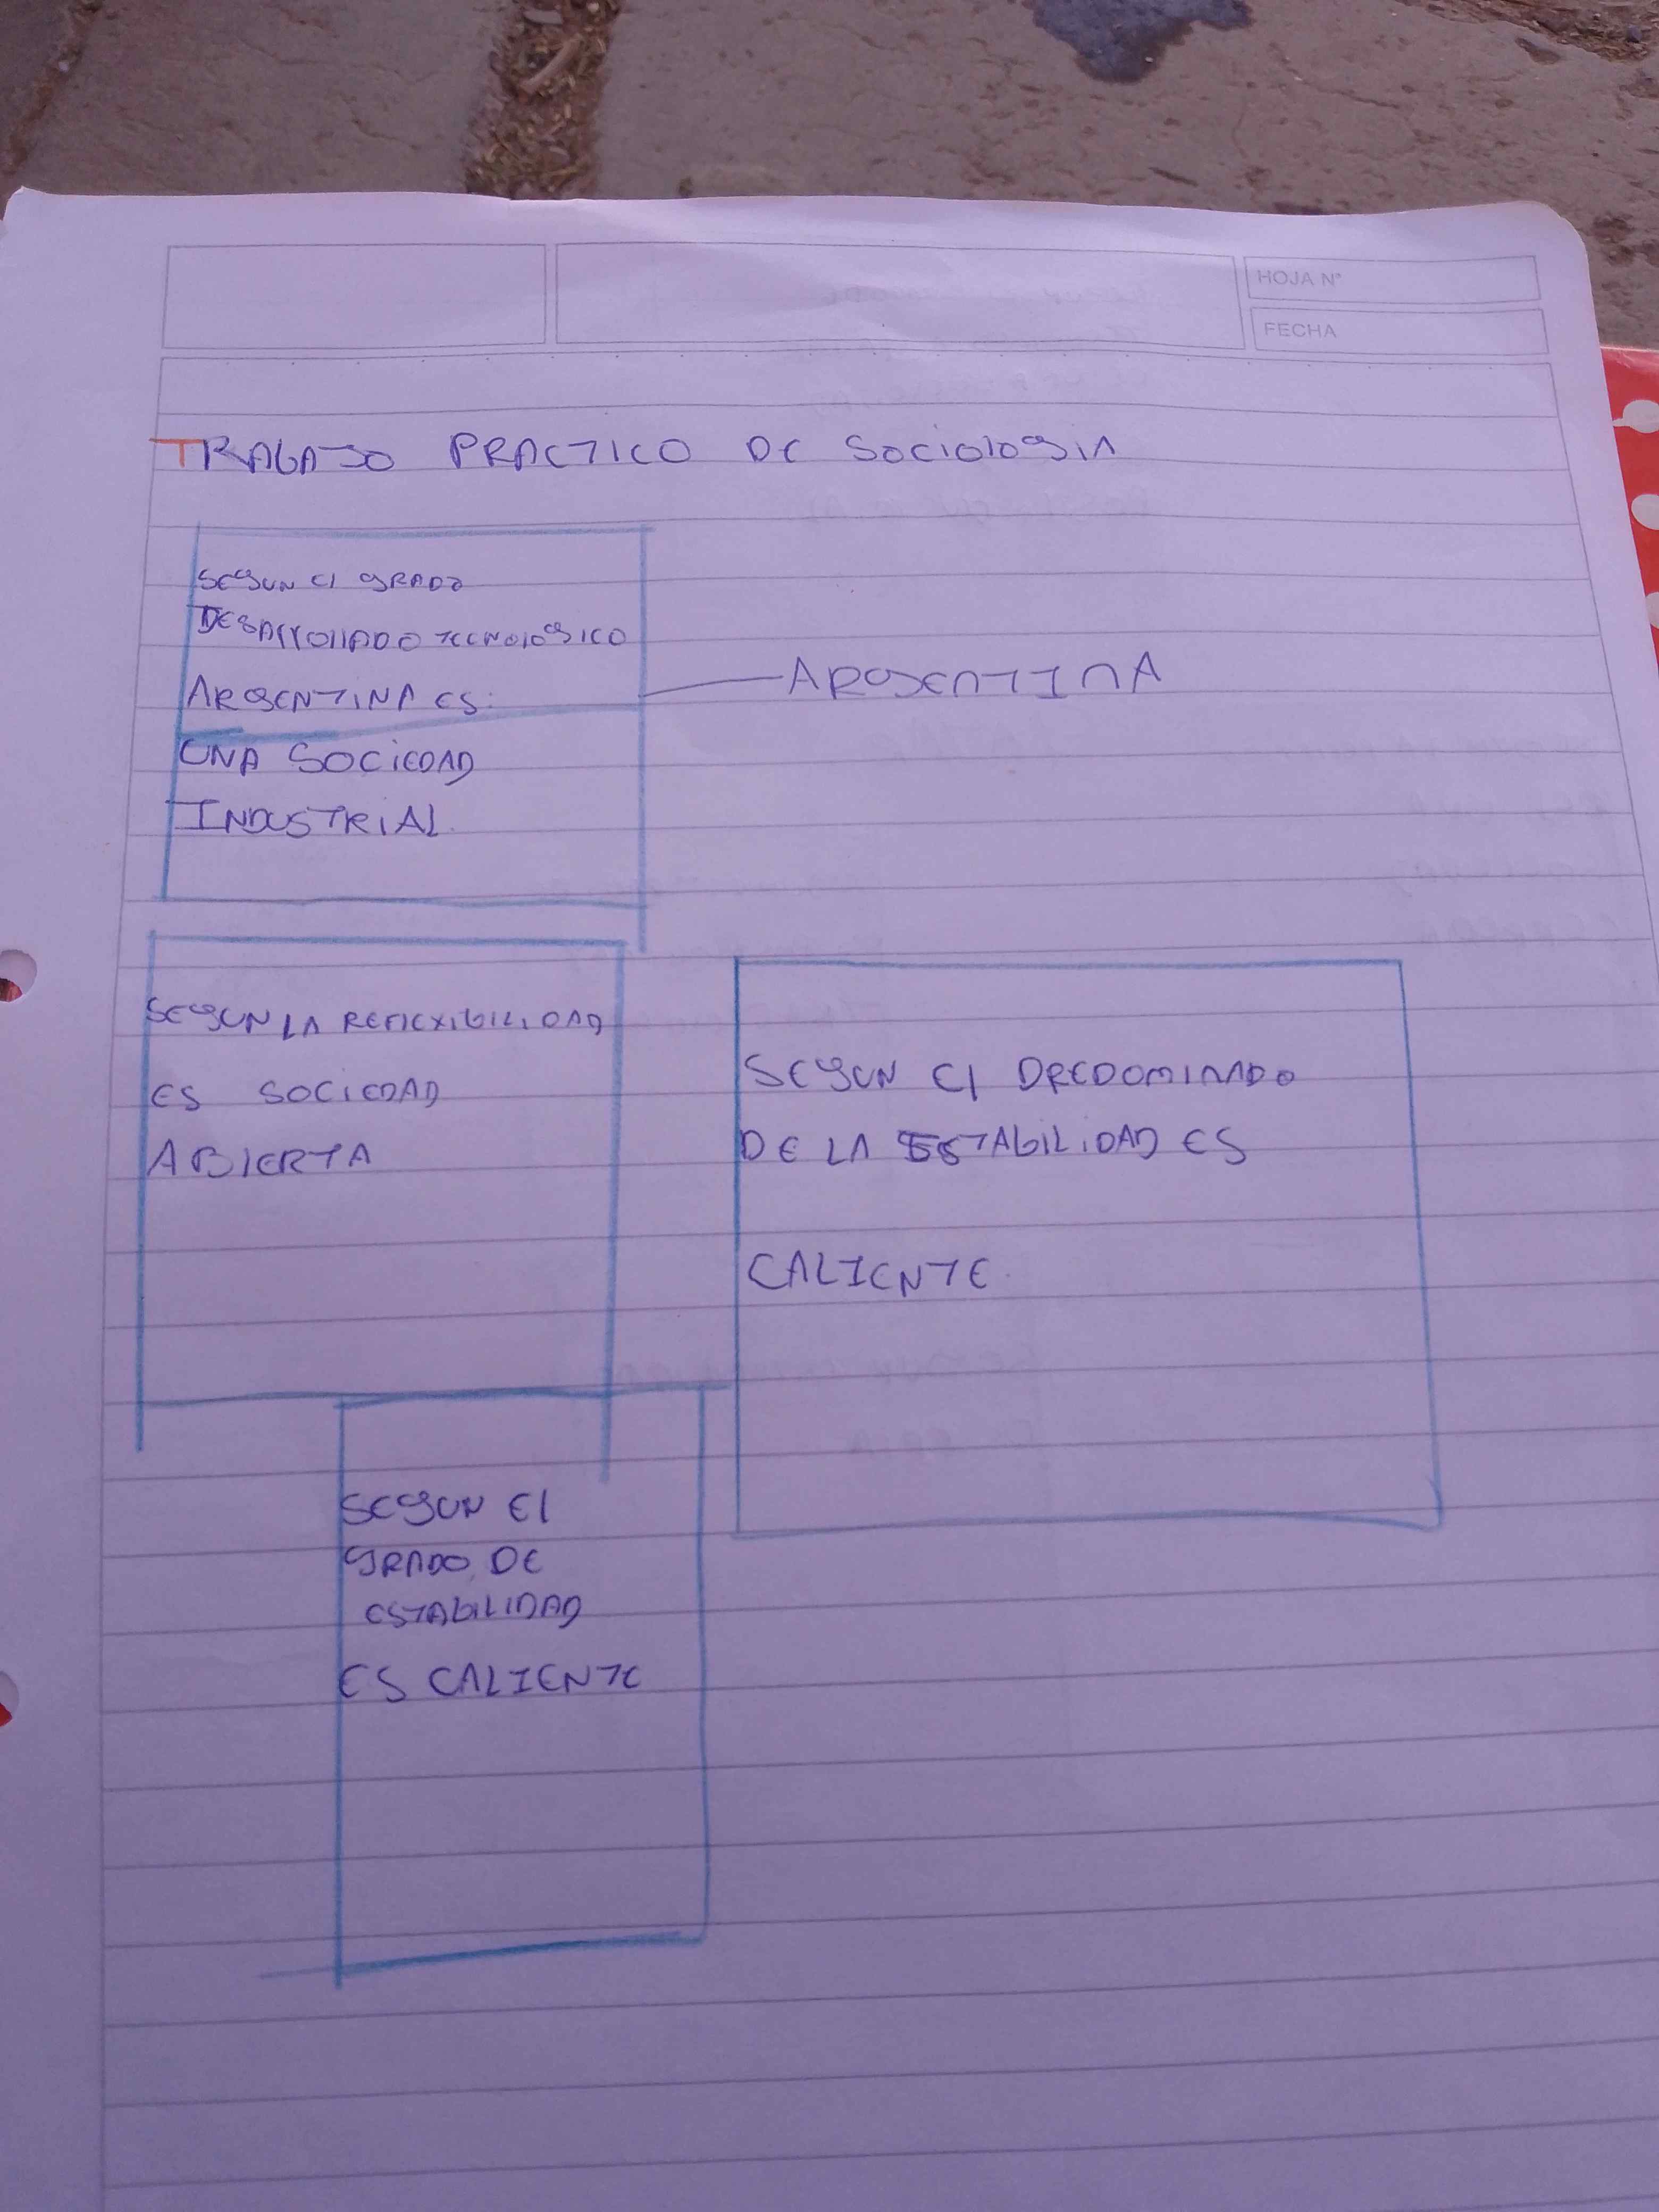 HOJA N°
FECHA
TRABAJO PRACTICO DE SOCIOLOGIA
SEGUN El GRADO
DESARROllADO TECNOlOGICO
ARGENTINA ES:
ARGENTINA
UNA SOCIEDAD
INDUSTRIAL.
SEGUN LA REFlEXIBILIDAD
ES SOCIEDAD
ABIERTA
SEGUN El DREDOMINADO
DE LA ESTABILIDAD ES
CALIENTE.
SEGUN El
GRADO DE
ESTABILIDAD
ES CALIENTE